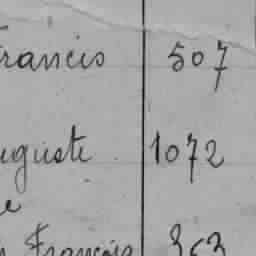 rancis 507
uguste 1072
e
François 363